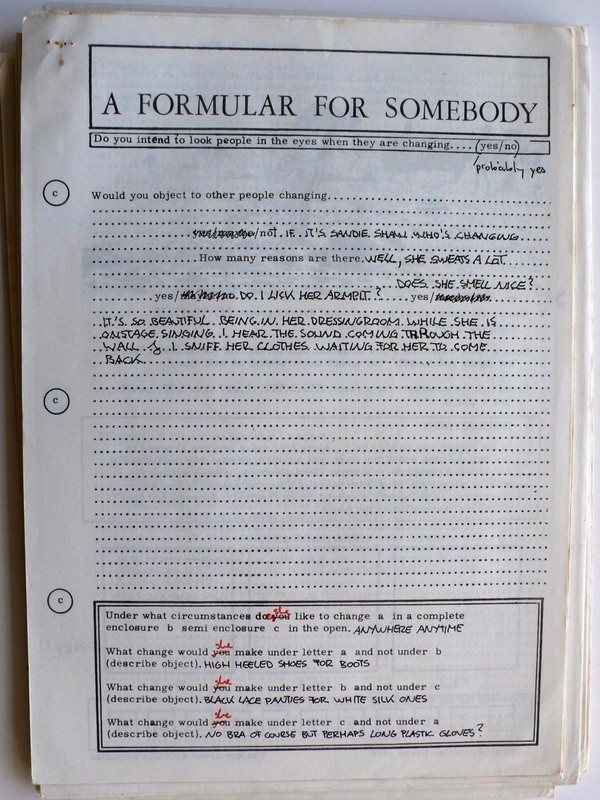 A FORMULAR FOR SOMEBODY
Do you intend to look people in the eyes when they are changing.... (yes/no)
probably yes
c
Would you object to other people changing
/not. IF IT'S SANDIE SHAW WHO'S CHANGING
How many reasons are there. WELL, SHE SWEATS A LOT
DOES SHE SMELL NICE?
yes/ DO I LICK HER ARMPIT? yes/
IT'S SO BEAUTIFUL BEING IN HER DRESSINGROOM WHILE SHE IS
ONSTAGE SINGING. I HEAR THE SOUND COMING THROUGH THE
WALL & I SNIFF HER CLOTHES WAITING FOR HER TO COME
BACK
c
c
Under what circumstances does she like to change a in a complete
enclosure b semi enclosure c in the open. ANYWHERE ANYTIME
What change would you she make under letter a and not under b
(describe object). HIGH HEELED SHOES FOR BOOTS
What change would you she make under letter b and not under c
(describe object). BLACK LACE PANTIES FOR WHITE SILK ONES
What change would you she make under letter c and not under a
(describe object). NO BRA OF COURSE BUT PERHAPS LONG PLASTIC GLOVES?